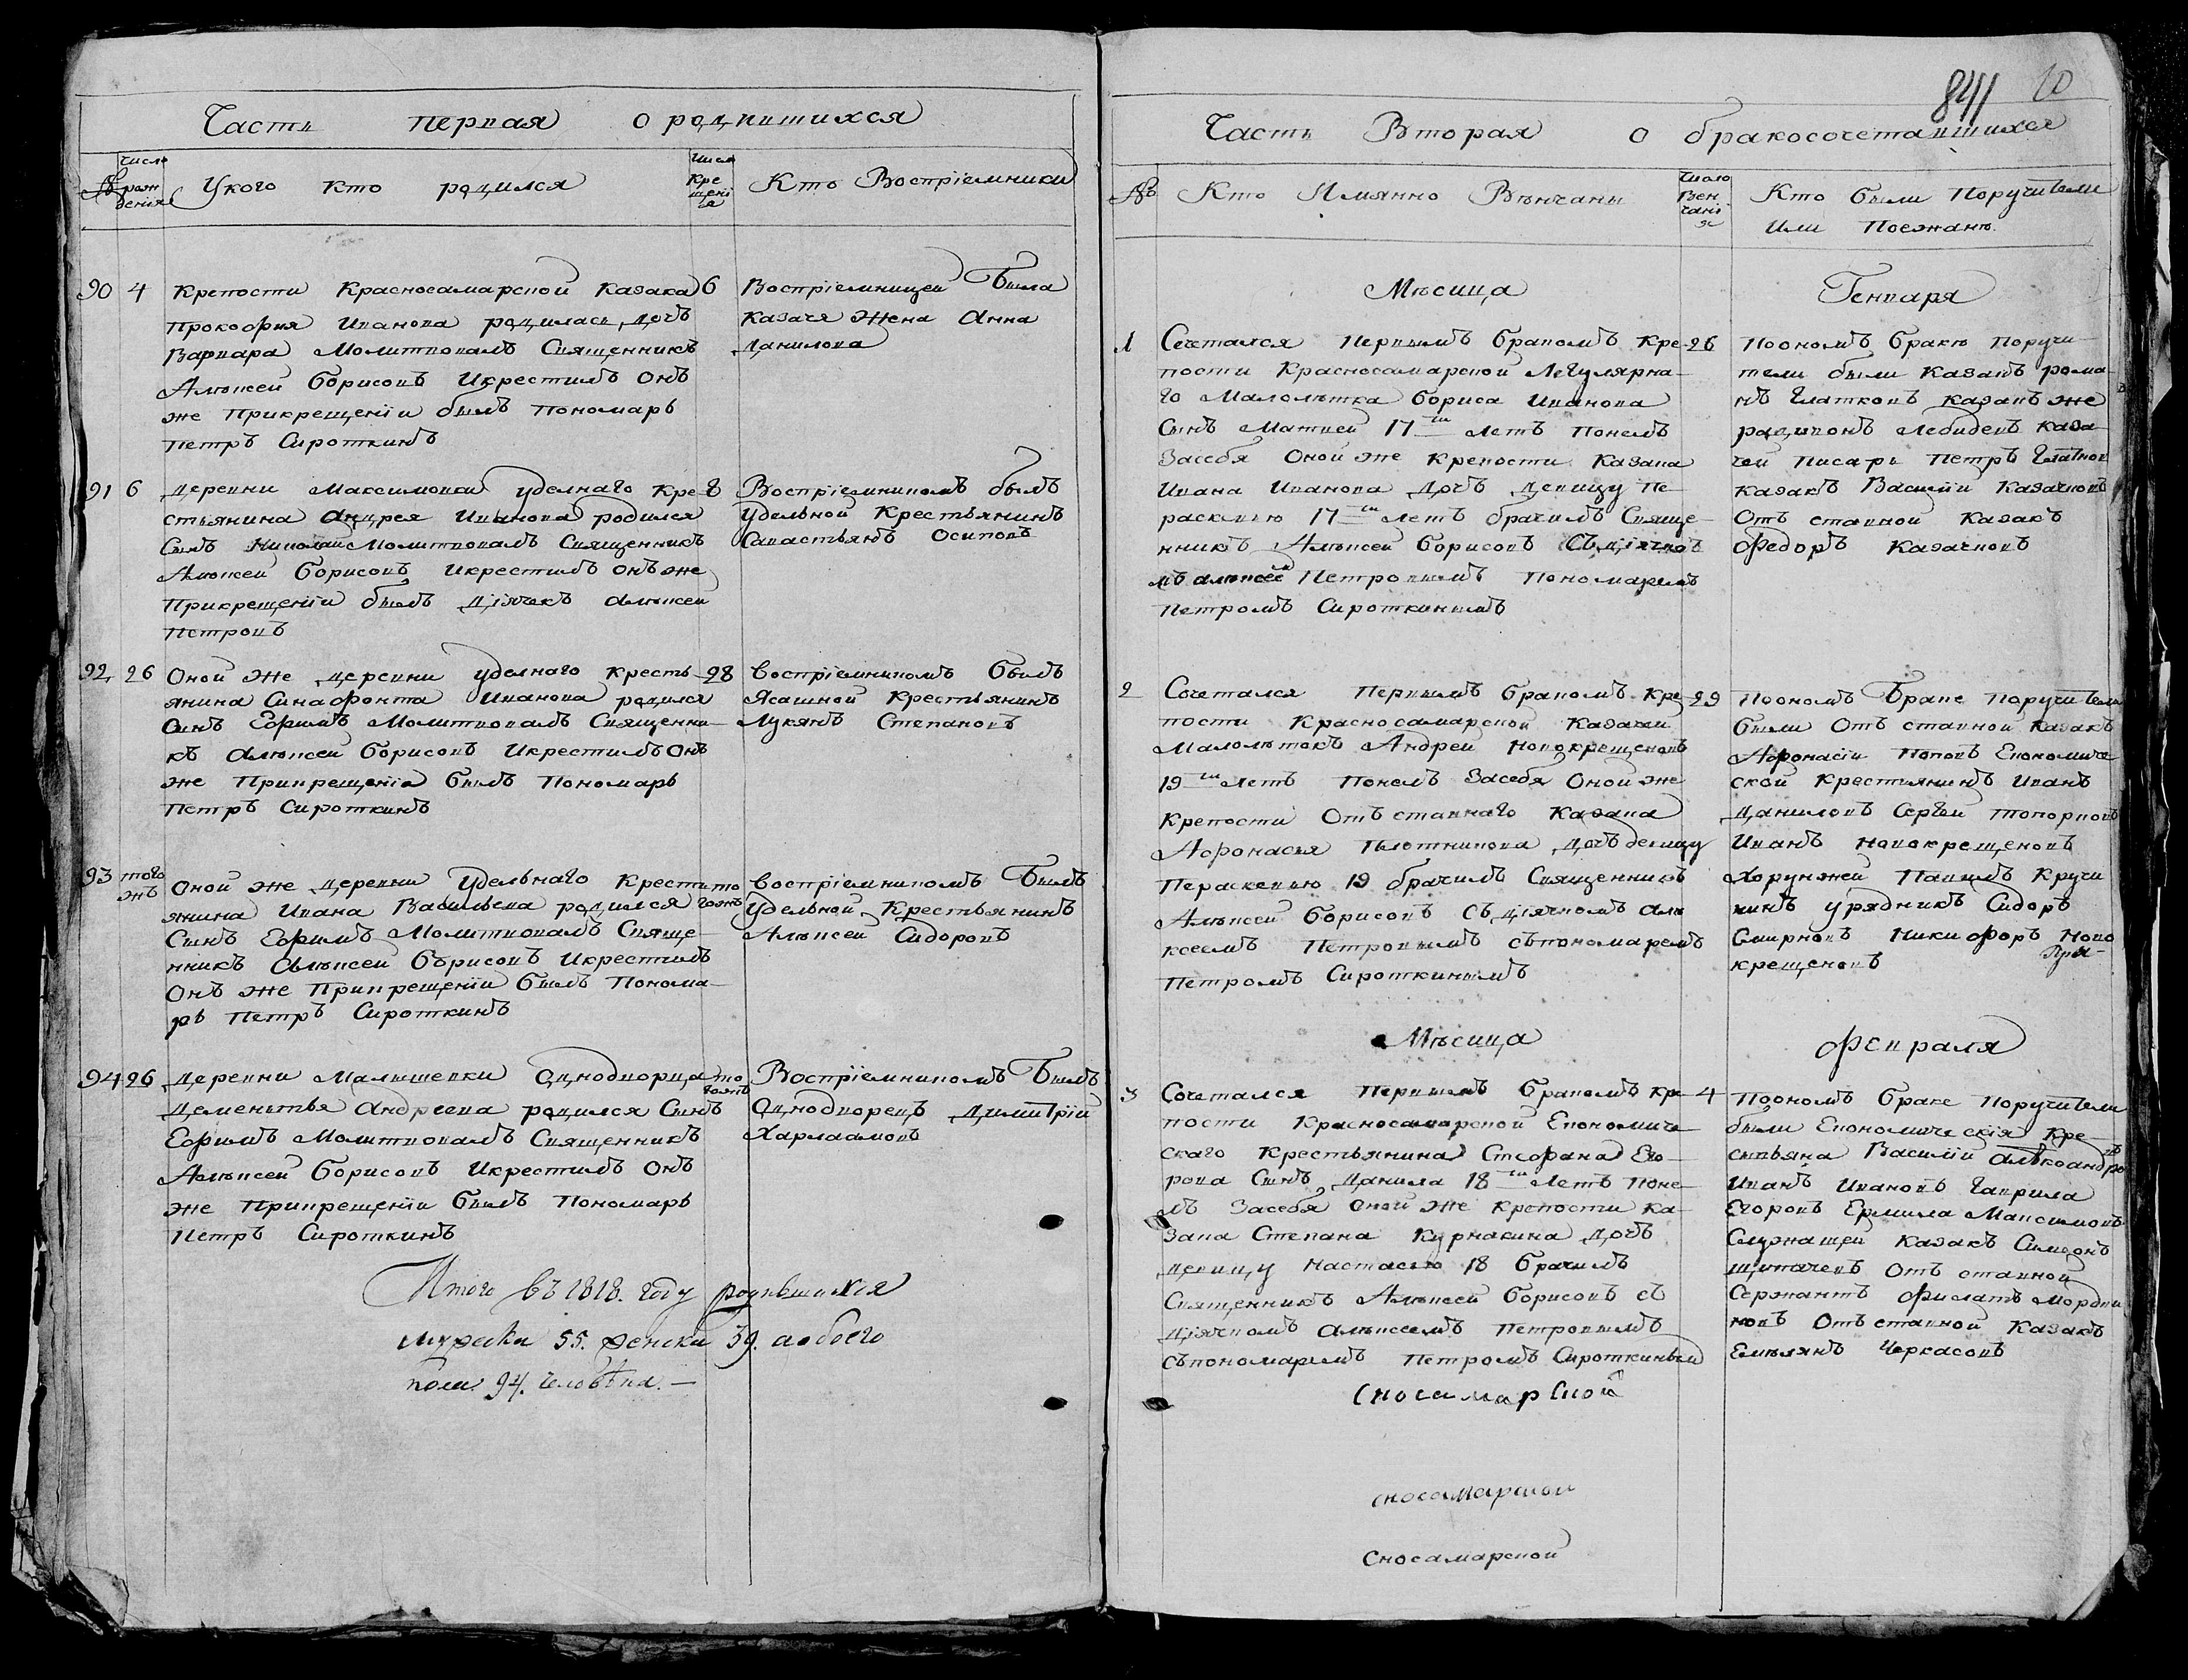 Часть первая о родившихся
№
Число рождения
У кого кто родился
Число крещения
Кто Восприемники
90 4
Крепости Красносамарской казака
Прокофия Иванова родилась дочь
Варвара Молитвовалъ Священникъ
Алѣксей Борисовъ Икрестилъ Онъ
же Прикрещеніи былъ Пономарь
Петръ Сироткинъ
6
Воспріемницей Была
Казачя Жена Анна
Данилова
91 6
Деревни Максимовки уделнаго кре-
стьянина Андрея Иванова родился
Сынъ Николай Молитвовалъ Священникъ
Алѣксей Борисовъ Икрестилъ Онъ же
Прикрещеніи былъ Діячекъ Алѣксей
Петровъ
8
Воспріемникомъ былъ
Удельной Крестьянинъ
Савастьянъ Осиповъ
92 26
Оной же деревни уделнаго кресть-
янина Синафонта Иванова родился
Сынъ Ефимъ Молитвовалъ Священни-
къ Алѣксей Борисовъ Икрестилъ Онъ
же Прикрещеніи былъ Пономарь
Петръ Сироткинъ
28
Воспріемникомъ былъ
Ясашной Крестьянинъ
Лукянъ Степановъ
93 того жъ
Оной же деревни Удельнаго Крести-
янина Ивана Васильева родился
Сынъ Ефимъ Молитвовалъ Свяще-
нникъ Алѣксей Борисовъ Икрестилъ
Онъ же Прикрещеніи былъ Понома-
рь Петръ Сироткинъ
того жъ
Воспріемникомъ Былъ
Удельной Крестьянинъ
Алѣксей Сидоровъ
94 26
Деревни Малышевки Однодворца
Дементья Андреева родился Сынъ
Ефимъ Молитвовалъ Священникъ
Алѣксей Борисовъ Икрестилъ Онъ
же Прикрещеніи былъ Пономарь
Петръ Сироткинъ
того жъ
Воспріемникомъ Былъ
Однодворецъ Димитрій
Харлаамовъ
Итого въ 1818. году родившихся
мужска 55. женска 39. а обоего
пола 94. человѣка.
841 10
Часть Вторая о бракосочетавшихся
№
Кто Имянно Вѣнчаны
Число Венчанія
Кто были Поручители
Или Поезжанѣ
Мѣсяца Генваря
1
Сочетался Первымъ бракомъ Кре-
пости Красносамарской
Малолѣтка Бориса Иванова
Сынъ Матвей 17 ти летъ Понелъ
Засебя Оной же крепости казака
Ивана Иванова дочь девицу Пе-
раскевию 17 ти летъ брачилъ Свяще-
нникъ Алѣксей Борисовъ Съдіячко
мъ алѣксее Петровымъ Пономаремъ
Петромъ Сироткинымъ
26
Поономъ бракѣ поручи-
тели были казакъ рома-
нъ Глатковъ казакъ же
радивонъ Лебидевъ каза-
чей писарь Петръ Глатков
казакъ Василий Казачковъ
Отъ ставной казакъ
Федоръ Казачковъ
2
Сочетался Первымъ бракомъ Кре-
пости Красносамарской Казачей
Малолѣтокъ Андрей Новокрещеновъ
19 ти летъ Понелъ Засебя Оной же
крепости Отъ ставнаго казака
Афонасья Плотникова дочь девицу
Пераскевию 19 брачилъ Священникъ
Алѣксей Борисовъ Съ діячкомъ алѣ
ксеемъ Петровымъ съпономаремъ
Петромъ Сироткинымъ
29
Поономъ Браке поручители
были Отъ ставной казакъ
Афонасіи Поповъ Економиче
ской Крестьянинъ Иванъ
Даниловъ Сергѣй Топорковъ
Иванъ Новокрещеновъ
Хорунжей Павилъ Кручи
нинъ урядникъ Сидоръ
Смирновъ Никифоръ Ново
крещеновъ
Мѣсяца Февраля
3
Сочетался Первымъ бракомъ Кре-
пости Красносамарской Економиче
скаго Крестьянина Стефана Его-
рова Сынъ Данила 18 ти Летъ Поне-
лъ Засебя Оной же крепости ка-
зака Степана Курнакина дочь
девицу Настасью 18 брачилъ
Священникъ Алѣксей Борисовъ съ
діячкомъ алѣксеемъ Петровымъ
съпономаремъ Петромъ Сироткиным
4
Поономъ браке поручители
были Економическія Кре-
стьяна Василий Алѣксандров
Иванъ Ивановъ Гаврила
Егоровъ Ермила Максимовъ
Служащей казакъ Симеонъ
Отъ ставной
Сержантъ Филатъ Мордви
новъ Отъ ставной казакъ
Емѣлянъ Черкасовъ
сносамарской
сносамарской
Сносамарской